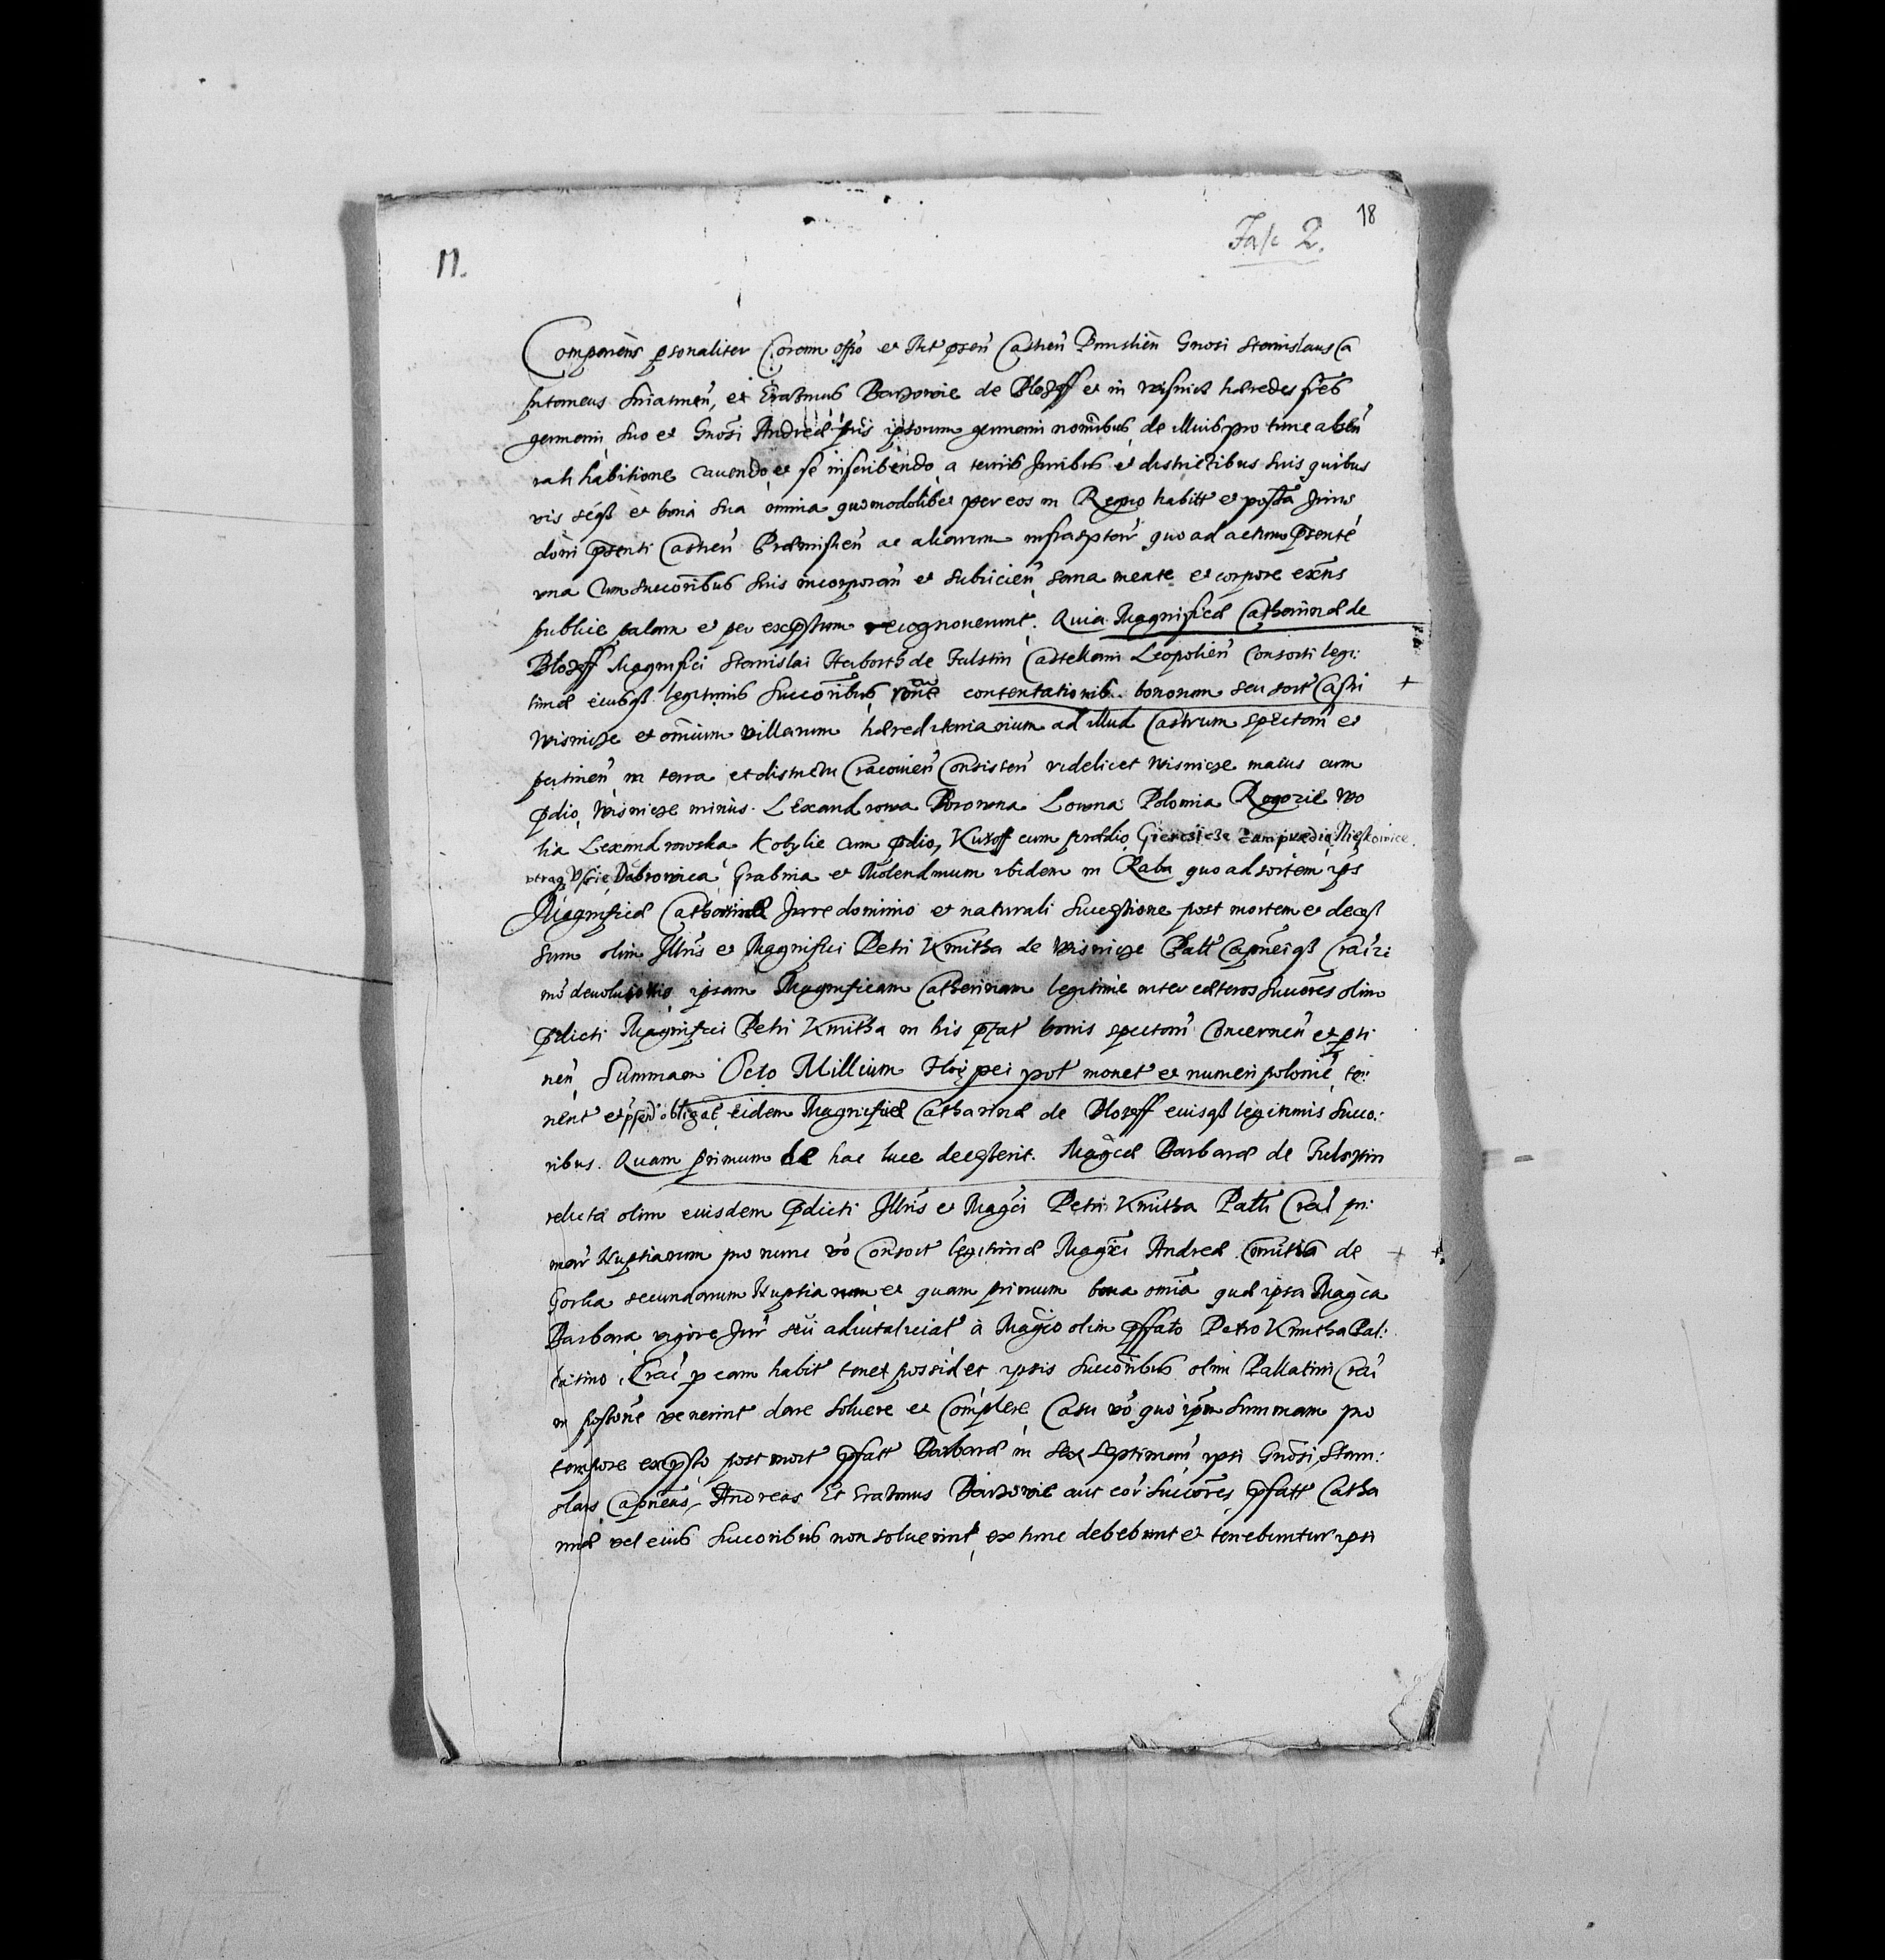 18
Fasc 2.
11.
Comparens personaliter Coram offo et Act pesen Castren Premislien Gnosi Stanislaus Ca
pitaneus Sniatinen, et Erasmus Barzowie de Blozeff et in Wisnicz heredes fres
germani suo et Gnosi Andreæ fris ipsorum germani nominibus, de illius pro tunc absen
rati habitione cavendo, et se inscribendo, a terris Juribus et districtibus suis quibus
vis seqß et bona sua omnia quomodolibet per eos in Regno habitt et possa Juris
doni psenti Castren Præmislien ac aliarum infrascptar quo ad actum psente
una Cum succoribus suis incorporan et subiicien sana mente et corpore exens
publice palam et per expssum recognoverunt. Quia Magnificæ Catharinæ de
Blozeff Magnifici Stanislai Herborth de Fulstin Castellani Leopolien Consorti legi:
timæ eiusqß legitimis Succoribus, rone contentationis bonorum seu sort Castri
Wisnicze et omium villarum hæreditariarum ad illud Castrum spectan et
pertinen in terra et districtu Cracovien Consisten videlicet Wisnicze maius cum
pdio, Wisnicze minus. Lexandrowa Borowna Lowna Polomia Rogozie Wo
lia Lexandrowska Kobylie cum pdio, Kuroff cum prædio, Gierczicze cum prædio, Nieskowice
utraq Uscie Dabrowica Grabina et Molendinum ibidem in Raba quo ad sortem ips
Magnificæ Catharinæ Jure dominio et naturali successione post mortem et decess
sum olim Illris et Magnifici Petri Kmitha de Wisnicze Palt Capneiqß Crac
mo devolutionis ipsam Magnificam Catherinam legitime inter cæteros Succores olim
pdicti Magnifici Petri Kmitha in his pfat bonis spectan Concernen et pti
nen, Summam Octo Millium Flor pei pol monet et numeri polonie, ten:
nent et psen obligat eidem Magnificæ Catharinæ de Blozeff eiusqß legitimis Succo:
ribus. Quam primum de hac luce decesserit. Magcæ Barbaræ de Fulsztin
relicta olim eiusdem pdicti Illris et Magci Petri Kmitha Patti Crac pri
mar Nuptiarum pro nunc vo Consort legitimæ Magci Andreæ Comitis de
Gorka secundarum Nuptiarum et quam primum bona omia quæ ipsa Magca
Barbara vigore Jur seu advitaliciat à Magco olim pffato Petro Kmitha Pal:
latino Crac p eam habit tenet possidet ipsis Succoribus olim Pallatini Crac
in possone venerint dare solvere et Complere Casu vo quo ipm Summam pro
tempore expsso post mort pfatt Barbaræ in sex septimani ipsi Gnosi, Stani:
slaus Capneus, Andreas Et Erasmus Barzowie aut eor Succores pfatt Catha
rinæ vel eius Succoribus non solverint, ex tunc debebunt et tenebuntur ipsi